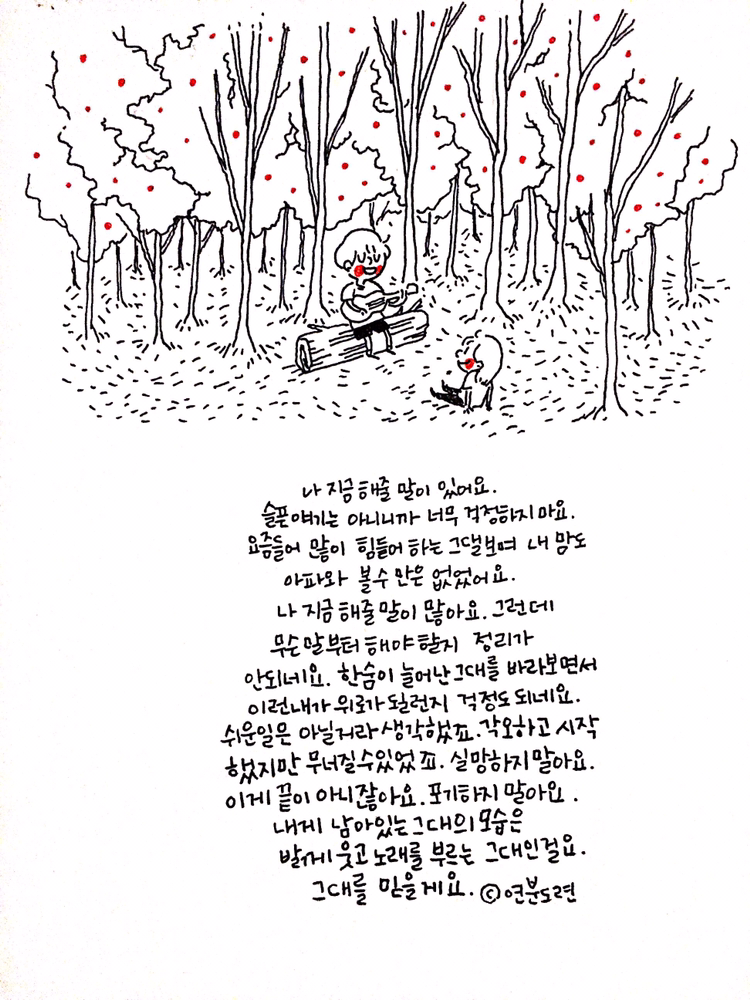 나 지금 해줄 말이 있어요.
슬픈 얘기는 아니니까 너무 걱정하지 마요.
요즘들어 많이 힘들어 하는 그댈보며 내 맘도
아파와 볼수 만은 없었어요.
나 지금 해줄 말이 많아요. 그런데
무슨 말부터 해야 할지 정리가
안되네요. 한숨이 늘어난 그대를 바라보면서
이런 내가 위로가 될런지 걱정도 되네요.
쉬운일은 아닐거라 생각했죠. 각오하고 시작
했지만 무너질수있었죠. 실망하지말아요.
이게 끝이 아니잖아요. 포기하지 말아요.
내게 남아있는 그대의 모습은
밝게 웃고 노래를 부르는 그대인걸요.
그대를 믿을게요. ©연분도련